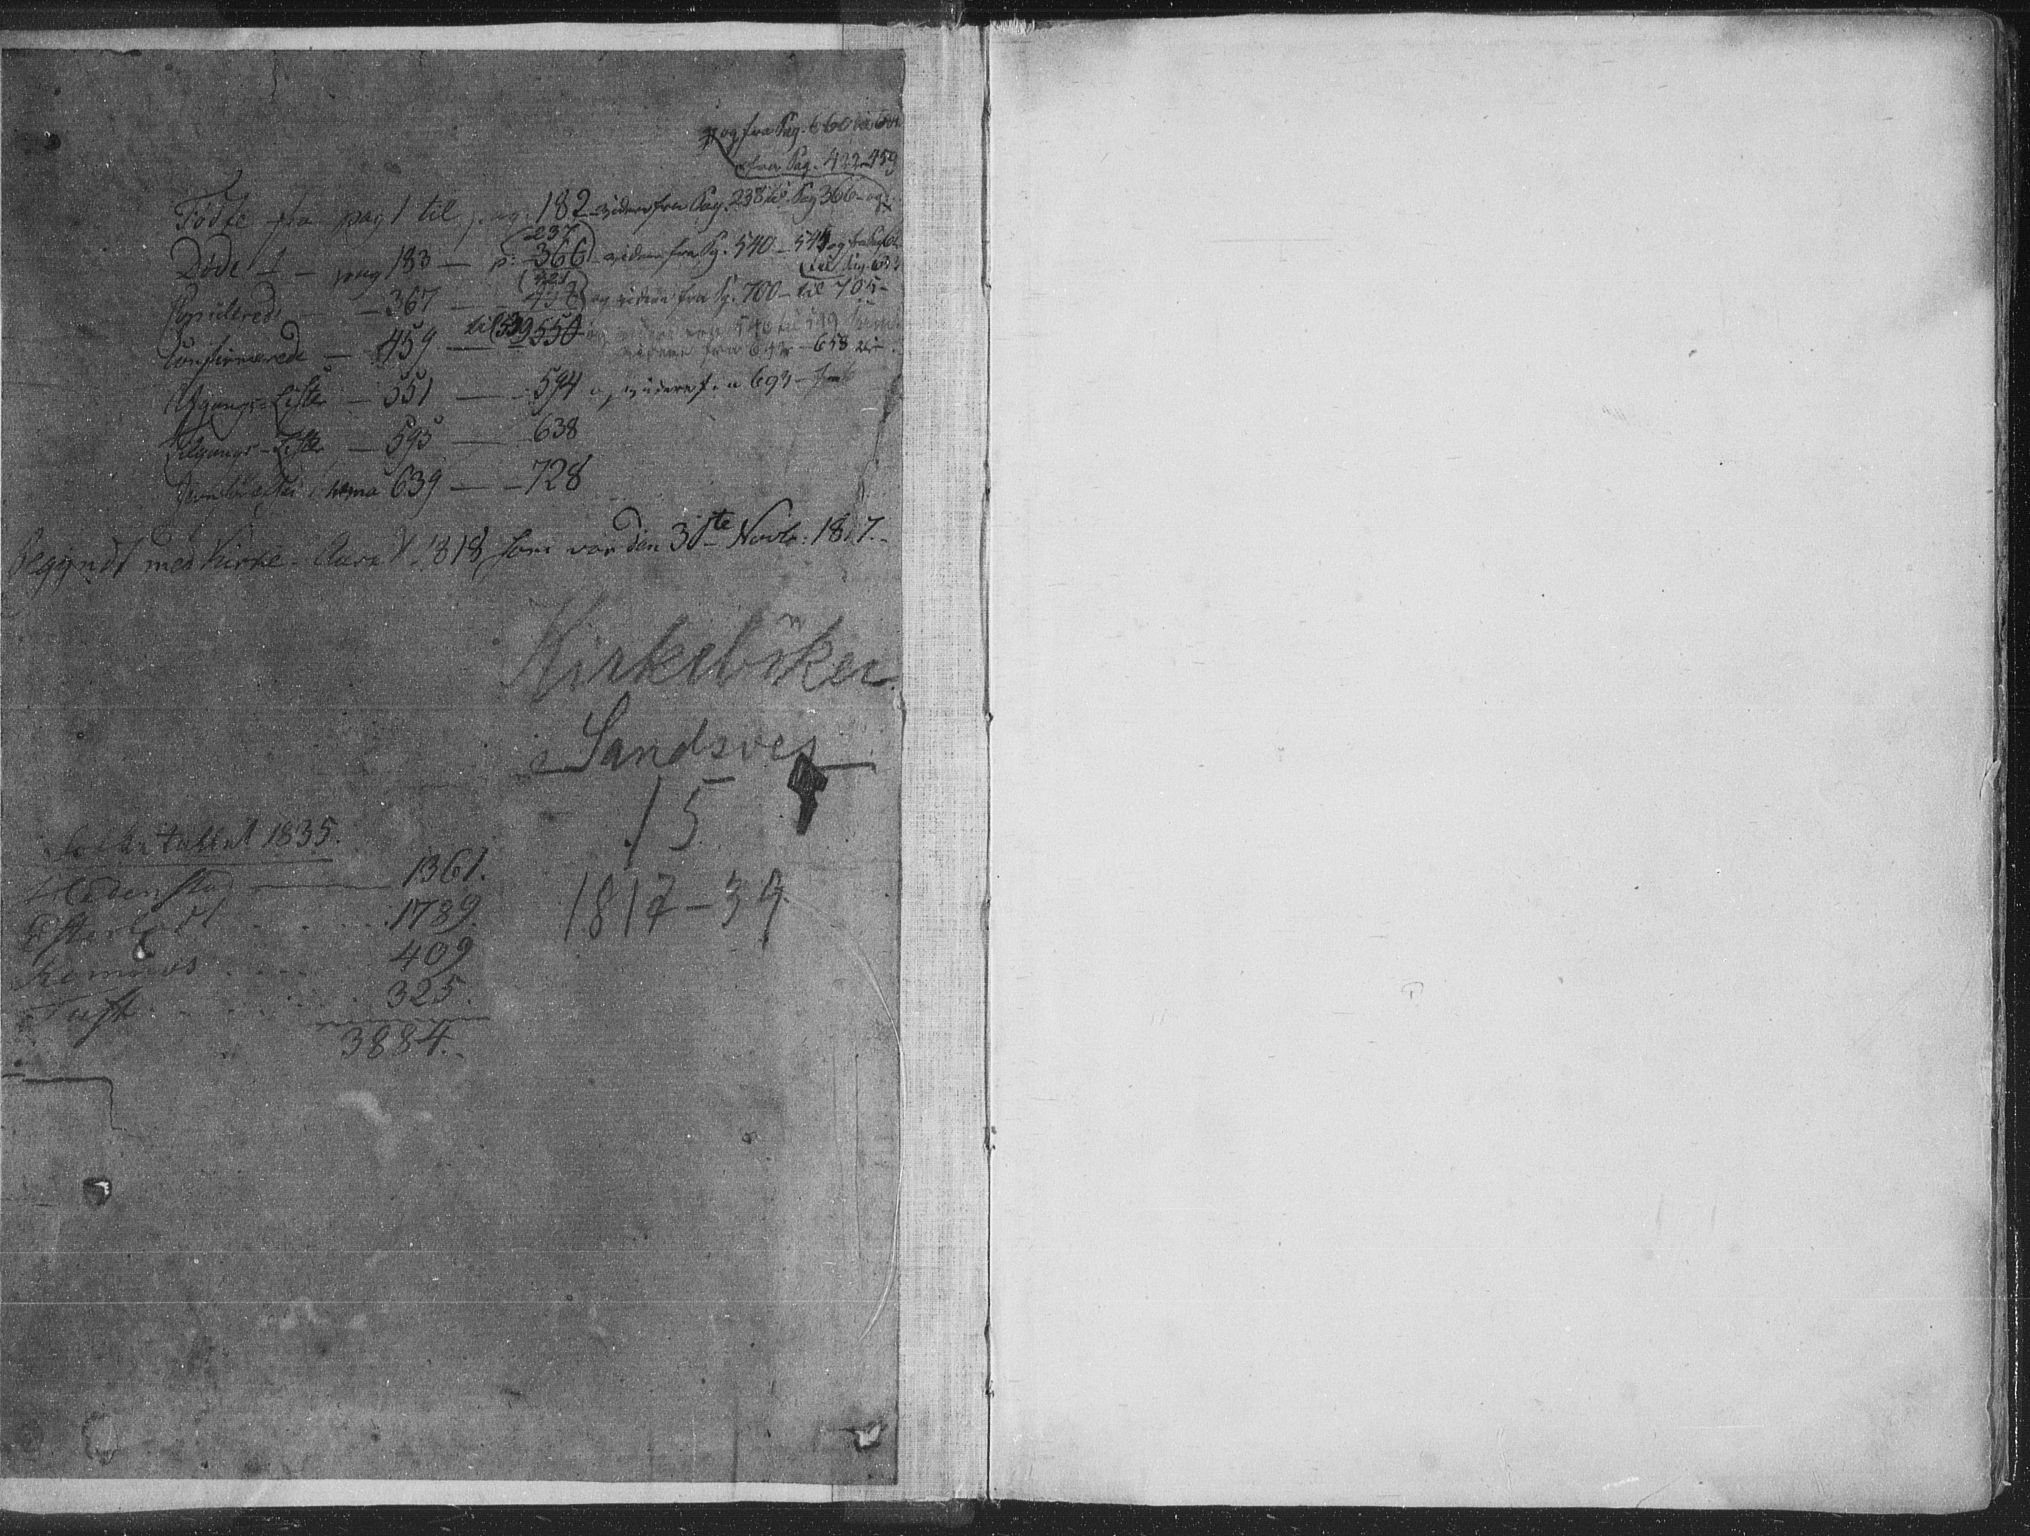 og fra Pag. 660
fra Pag. 422-459
Fødte fra pag 1 til pag. 182 videre fra Pag. 238 til Pag 366 og
237
Døde - pag 183 - p. 366 videre fra Pg. 540 - 545 og fra
til Pag. 633
421
Copulerede - 367 - 458 og videre fra Pg. 700 - til 705
Confirmerede - 459 - til 539 550
videre fra 658
Afgangs-Lister - 551 - 594 og videre fra 693
Tilgangs-Lister - 595 - 638
639 - 728
Begyndt med Kirke-Aaret 1818 som var den 30te Novbr: 1817.
Kirkebøker
Sandsver
15
1817-39
Folketallet 1835.
Hedenstad 1361.
Eftelødt 1789.
Komnes 409
Tuft 325.
3884.